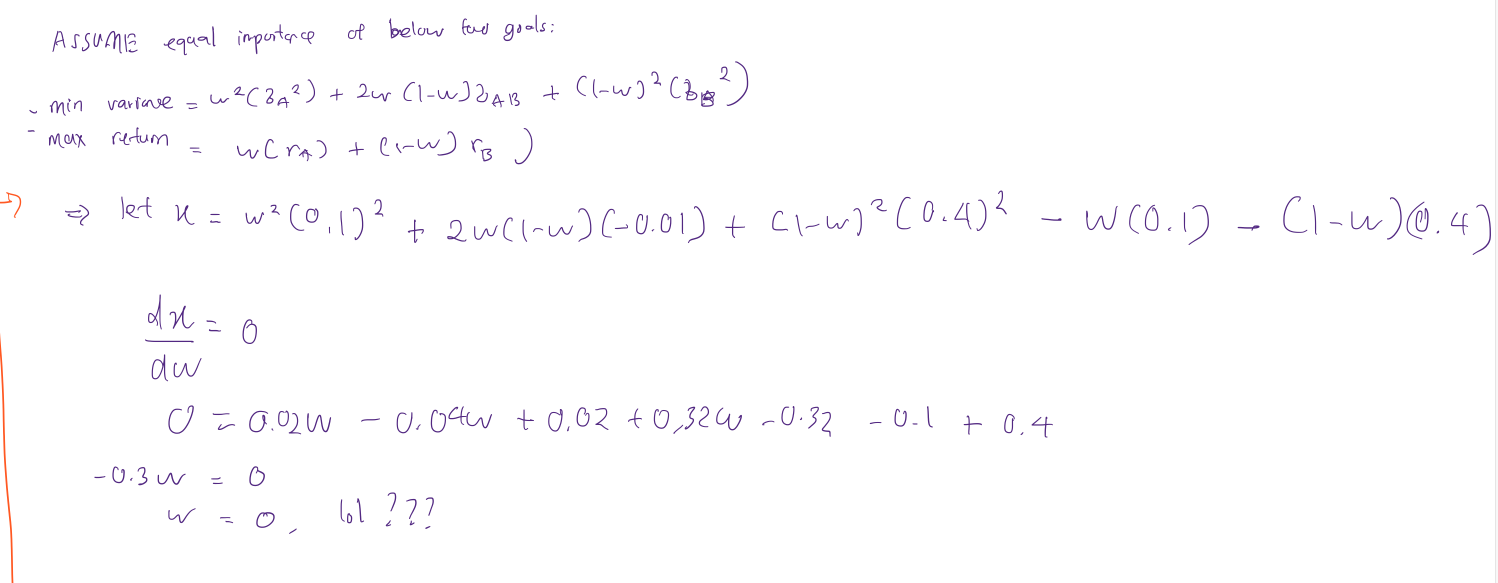 ASSUME equal importance of below two goals:
- min variance = w²(3A²) + 2w(1-w)3AB + (1-w)²(3B²)
- max return = w(rA) + (1-w) rB )
⇒ let x = w²(0.1)² + 2w(1-w)(-0.01) + (1-w)²(0.4)² - w(0.1) - (1-w)(0.4)
dx/dw = 0
0 = 0.02w - 0.04w + 0.02 + 0.32w - 0.32 - 0.1 + 0.4
-0.3w = 0
w = 0, lol ???